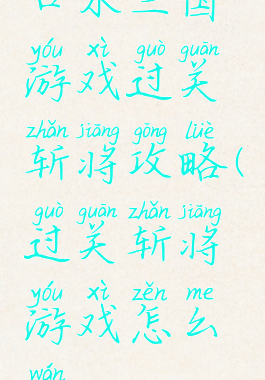 yóu xì guò guān
游戏过关
zhǎn jiāng gōng lüè
斩将攻略(
guò guān zhǎn jiāng
过关斩将
yóu xì zěn me
游戏怎么
wán